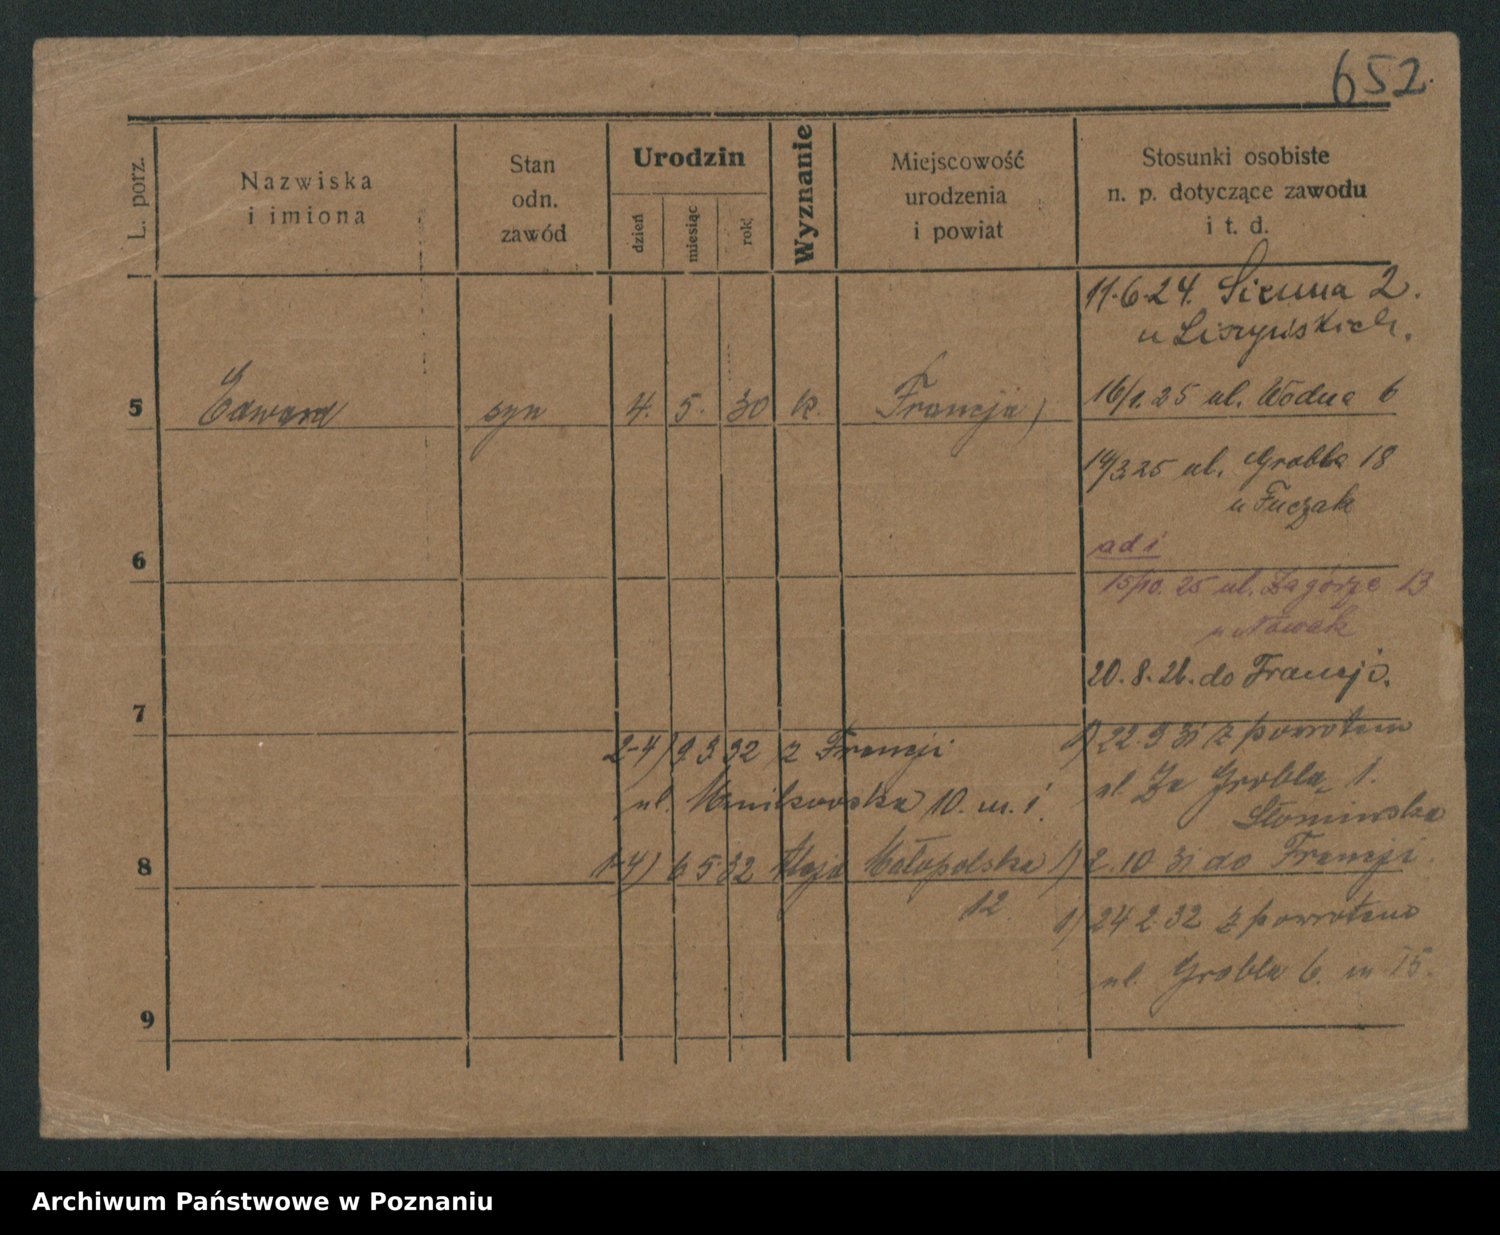 652.
L. porz.
Nazwiska
i imiona
Stan
odn.
zawód
Urodzin
dzień
miesiąc
rok
Wyznanie
Miejscowość
urodzenia
i powiat
Stosunki osobiste
n. p. dotyczące zawodu
i t. d.
11.6.24. Sienna 2.
u
16/1.25 ul. Wodna 6
5 Edward syn 4. 5. 30 k. Francja
19/3.25 ul. Grobla 18
u
6
ad i
15/10.25 ul. Zagórze 13
u Nowak
20.8.26. do Francji.
7
1) 22.9 31 z powrotem
2-4) 9.3.32 z Francji
ul. Za Groblą 1.
ul. 10. m. 1.
Słomińska
8
1-4) 6 5.32 Aleja Małopolska
12
1) 2.10 31 do Francji.
1) 24 2.32 z powrotem
ul. Grobla 6. m 15.
9
Archiwum Państwowe w Poznaniu